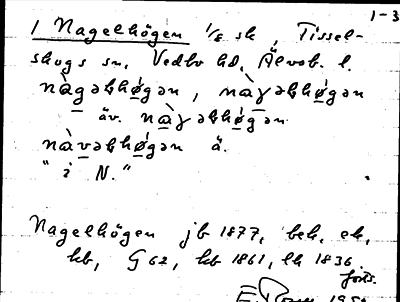 1-3
1 Nagelhögen 1/8 sk, Tissel-
skogs sn, Vedbo hd, Älvsb. l.
nàgəƚhø̀gən, nàɣəƚhø̀gən
äv. nàɣəƚhø̀gən
nàvəƚhø̀gən ä.
"i N."
Nagelhögen jb 1877, beh, ek,
kb, G 62, kb 1861, lk 1836
forts.